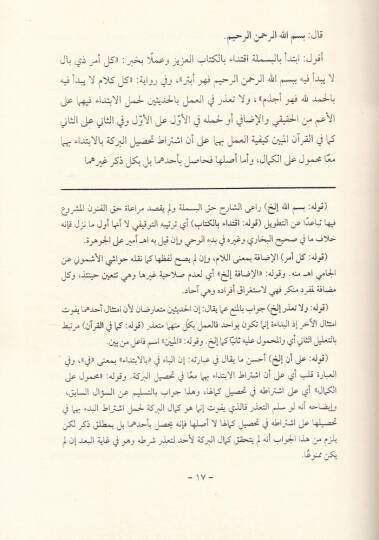 قال: بسم الله الرحمن الرحيم.
أقول: ابتدأ بالبسملة اقتداء بالكتاب العزيز وعملًا بخبر: «كل أمر ذي بال
لا يبدأ فيه ببسم الله الرحمن الرحيم فهو أبتر»، وفي رواية: «كل كلام لا يبدأ فيه
بالحمد لله فهو أجذم»، ولا تعذر في العمل بالحديثين لحمل الابتداء فيهما على
الأعم من الحقيقي والإضافي أو لحمله في الأوّل على الأوّل وفي الثاني على الثاني
كما في القرآن المبين كيفية العمل بهما على أن اشتراط تحصيل البركة بالابتداء بهما
معًا محمول على الكمال، وأما أصلها فحاصل بأحدهما بل بكل ذكر غيرهما
(قوله: بسم الله إلخ) راعى الشارح حق البسملة ولم يقصد مراعاة حق الفنون المشروع
فيها تباعدًا عن التطويل (قوله: اقتداء بالكتاب) أي ترتيبه التوقيفي لا أنها أول ما نزل فإنه
خلاف ما في صحيح البخاري وغيره في بدء الوحي وإن قيل به اهـ أمير على الجوهرة.
(قوله: كل أمر) الإضافة بمعنى اللام، وإن لم يصح لفظها كما نقله حواشي الأشموني عن
الجامي اهـ منه. وقوله: «الإضافة إلخ» أي لعدم صلاحية غيرها وهي تتعين حينئذ، وكل
مضافة لمفرد منكر فهي لاستغراق أفراده وهي آحاد.
(قوله: ولا تعذر إلخ) جواب بالمنع عما يقال: إن الحديثين متعارضان لأن امتثال أحدهما يفوت
امتثال الآخر إذ البداءة إنما تكون بواحد فالعمل بكلّ منهما متعذر (قوله: كما في القرآن) مرتبط
بالتعليل الثاني أي والمحمول عليه ثانيًا كما إلخ. وقوله: «المبين» اسم فاعل من بين.
(قوله: على أن إلخ) أحسن ما يقال في عبارته: إن الباء في «بالابتداء» بمعنى «في»، وفي
العبارة قلب أي على أن اشتراط الابتداء بهما معًا في تحصيل البركة. وقوله: «محمول على
الكمال» أي على اشتراطه في تحصيل كمالها، وهذا جواب بالتسليم عن السؤال السابق،
وإيضاحه أنه لو سلم التعذر فالذي يفوت إنما هو كمال البركة لحمل اشتراط البدء بهما في
تحصيلها على اشتراطه في تحصيل كمالها لا أصلها فإنه يحصل بأحدهما بل بمطلق ذكر لكن
يلزم من هذا الجواب أنه لم يتحقق كمال البركة لأحد لتعذر شرطه وهو في غاية البعد إن لم
يكن ممنوعًا.
- ١٧ -